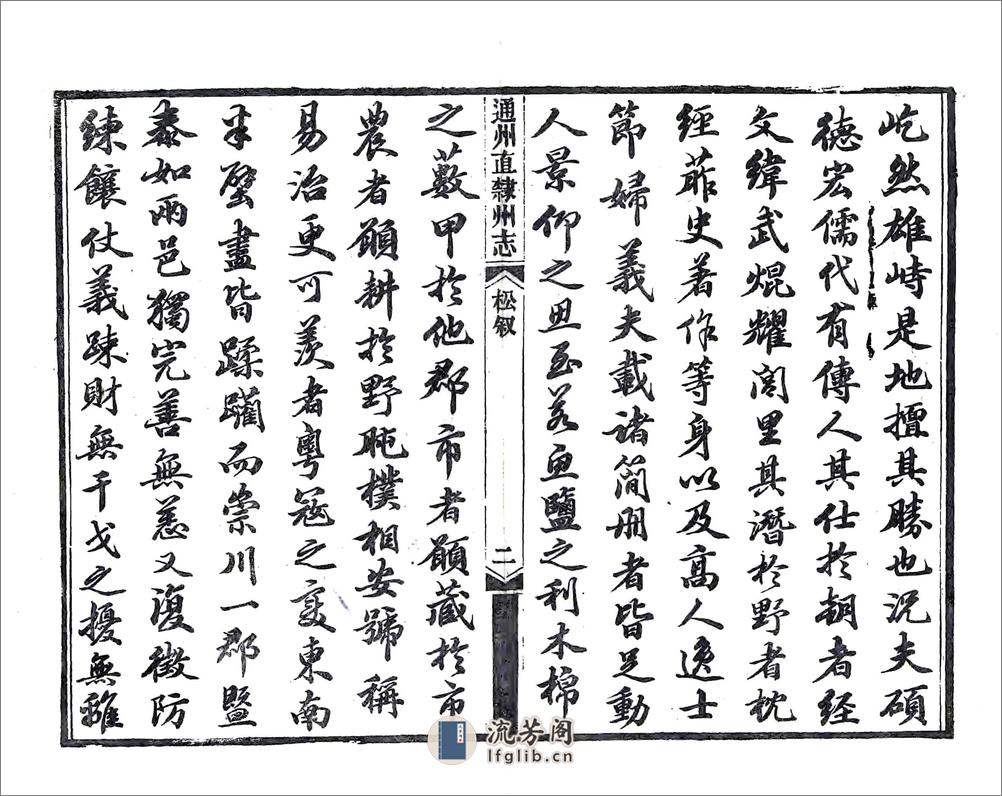 屹然雄峙是地擅其勝也況夫碩
德宏儒代有傳人其仕於朝者經
文緯武焜耀閭里其潛於野者枕
經葄史著作等身以及高人逸士
節婦義夫載諸簡册者皆足動
人景仰之思至若魚鹽之利木棉
通州直隸州志
松叙
二
之藪甲於他郡市者願藏於市
農者願耕於野肫樸相安號稱
易治更可羨者粵寇之變東南
半壁盡皆蹂躪而崇川一郡暨
泰如兩邑獨完善無恙又復徵防
鍊餉仗義疎財無干戈之擾無雞
流芳阁
lfglib.cn